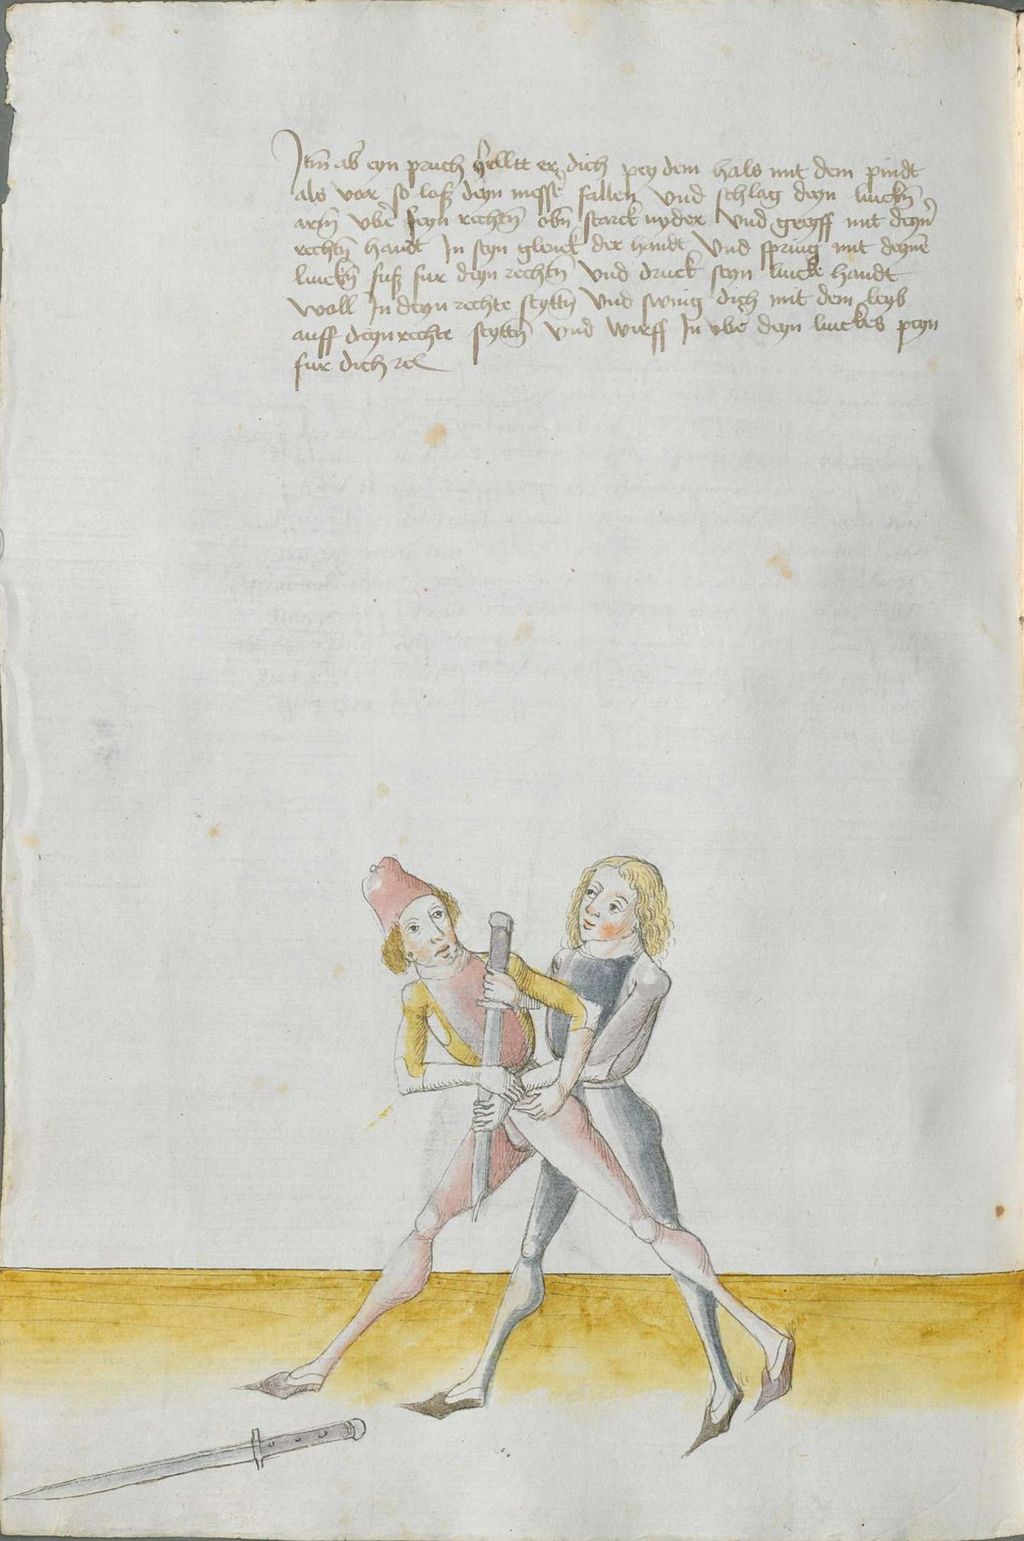 Itm̄ ab eyn pruch helltt er dich pey dem hals mit dem pindt
als vor so loß deyn messe fallen Vnd schlag deyn linckn̄
arm̄ vbē seyn rechtn̄ obn̄ starck nyder Vnd greyff mit deyn̄
rechtn̄ handt In seyn glenck der handt Vnd spring mit deynē
linckn̄ fuß fur deyn rechtn̄ Vnd druck seyn lincke handt
woll In deyn rechte seyttn̄ Vnd swing dich mit dem leyb
auff deyn rechte seyttn̄ Vnd wirff In vbē deyn linckes peyn
fur dich